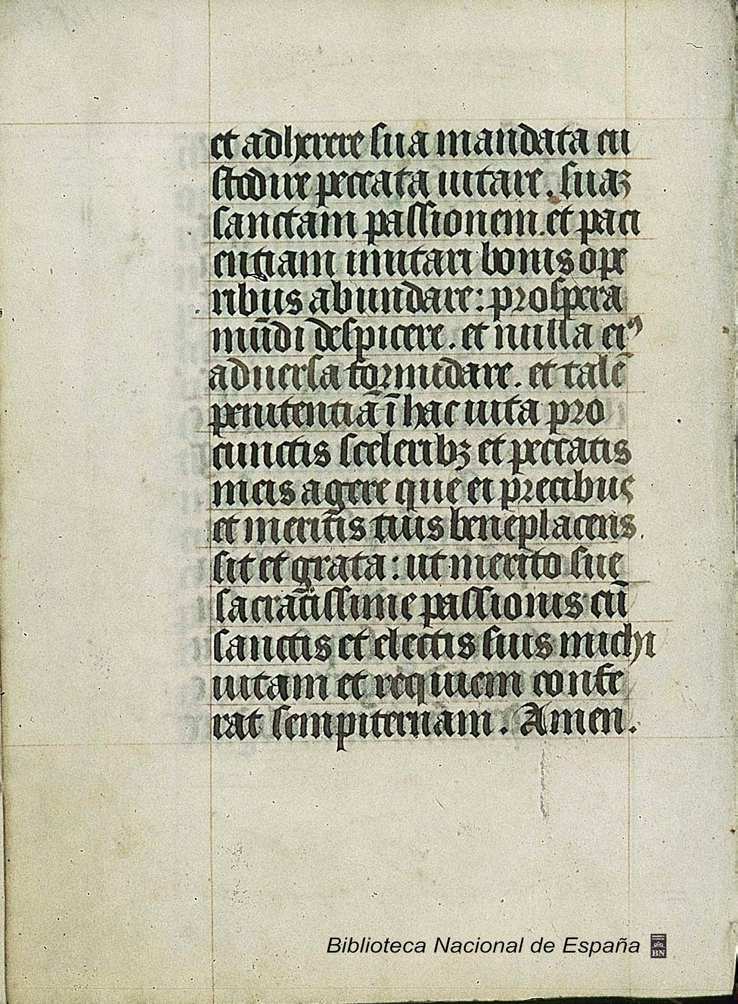 et adherere sua mandata cu
stodire peccata uitare. suaꝫ
sanctam passionem et paci
entiam imitari bonis ope
ribus abundare: prospera
mūdi despicere. et nulla eiꝰ
aduersa formidare. et talē
penitentiā ī hac uita pro
cunctis sceleribꝫ et peccatis
meis agere que ei precibus
et meritis tuis beneplacens
sit et grata: ut merito sue
sacratissime passionis cū
sanctis et electis suis michi
uitam et requiem confe
rat sempiternam. Amen.
Biblioteca Nacional de España
BN